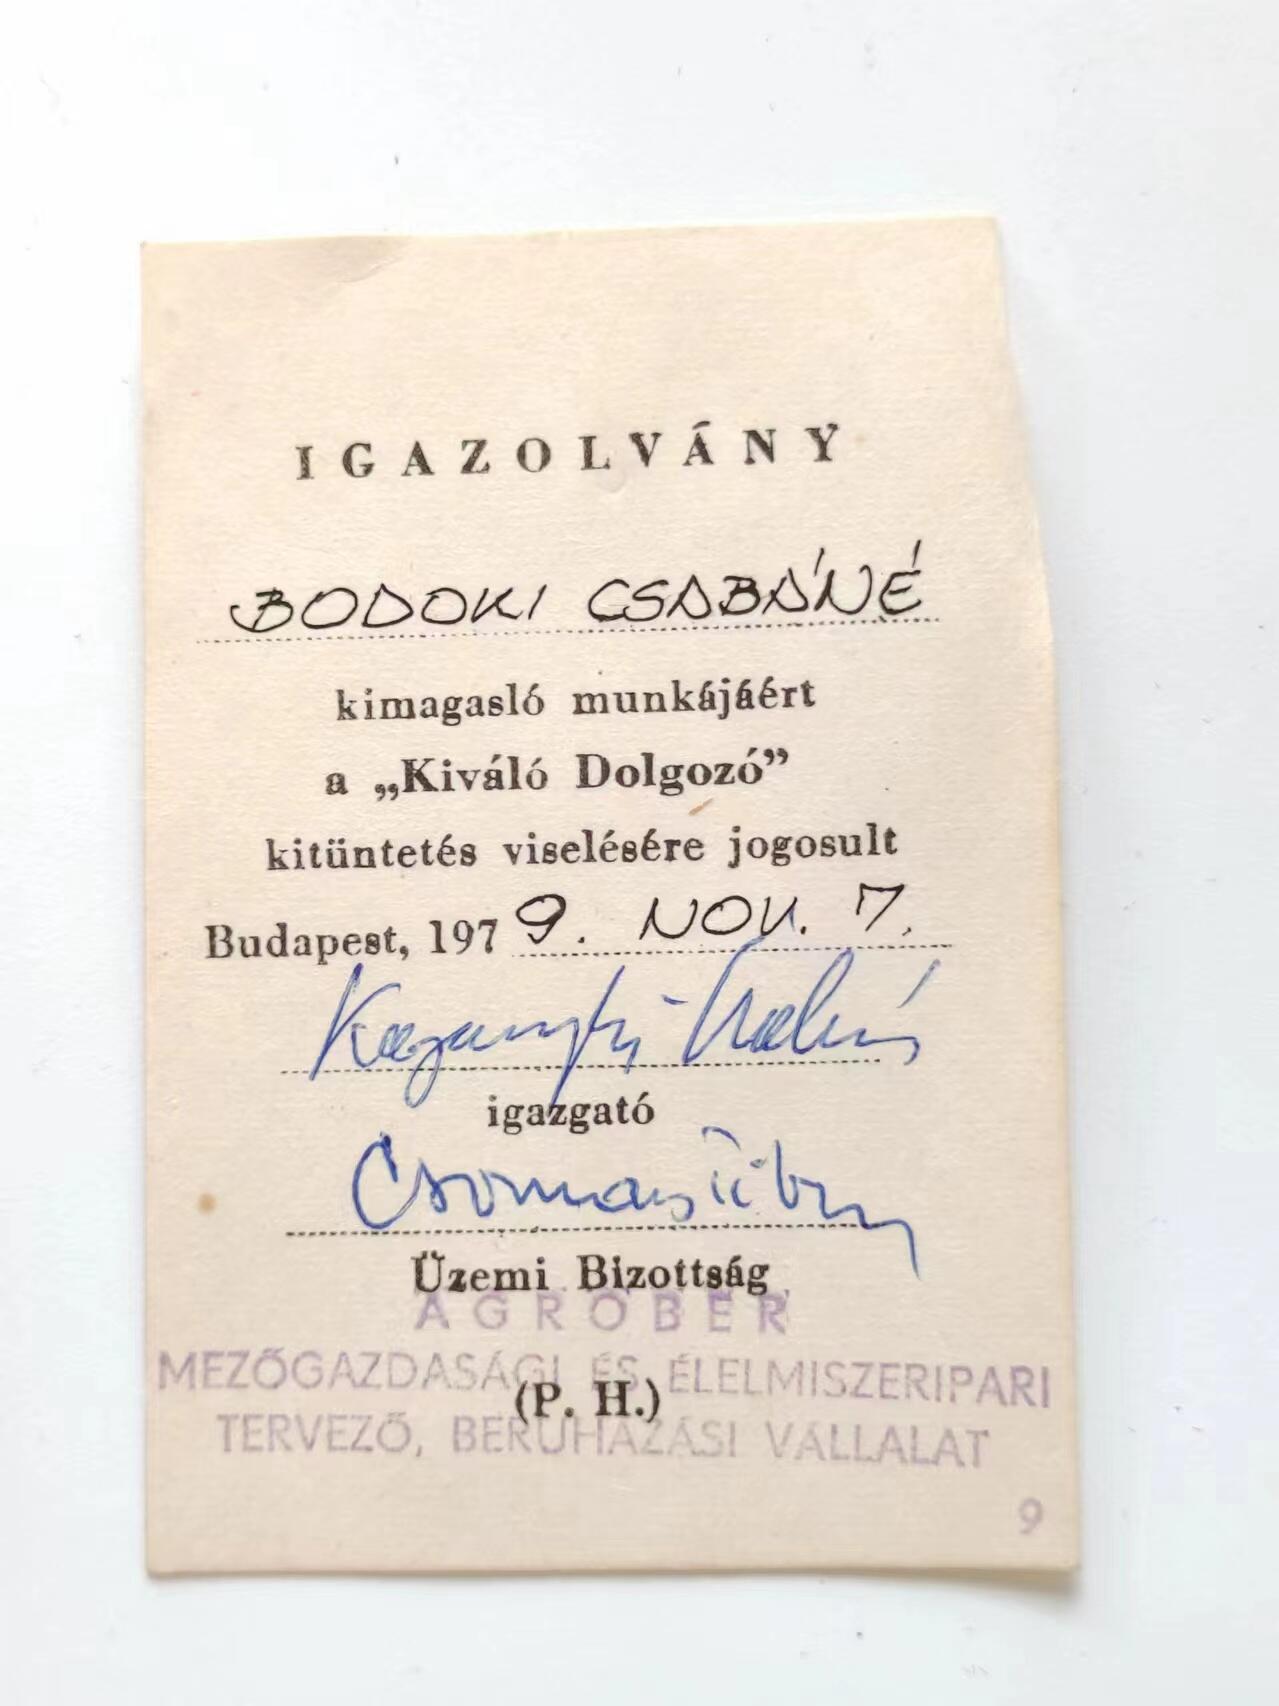 IGAZOLVÁNY
BODOKI CSABÁNÉ
kimagasló munkájáért
a „Kiváló Dolgozó”
kitüntetés viselésére jogosult
Budapest, 1979. NOV. 7.
igazgató
Csomas Tibor
Üzemi Bizottság
AGROBER
MEZŐGAZDASÁGI ÉS ÉLELMISZERIPARI
(P. H.)
TERVEZŐ, BERUHÁZÁSI VÁLLALAT
9